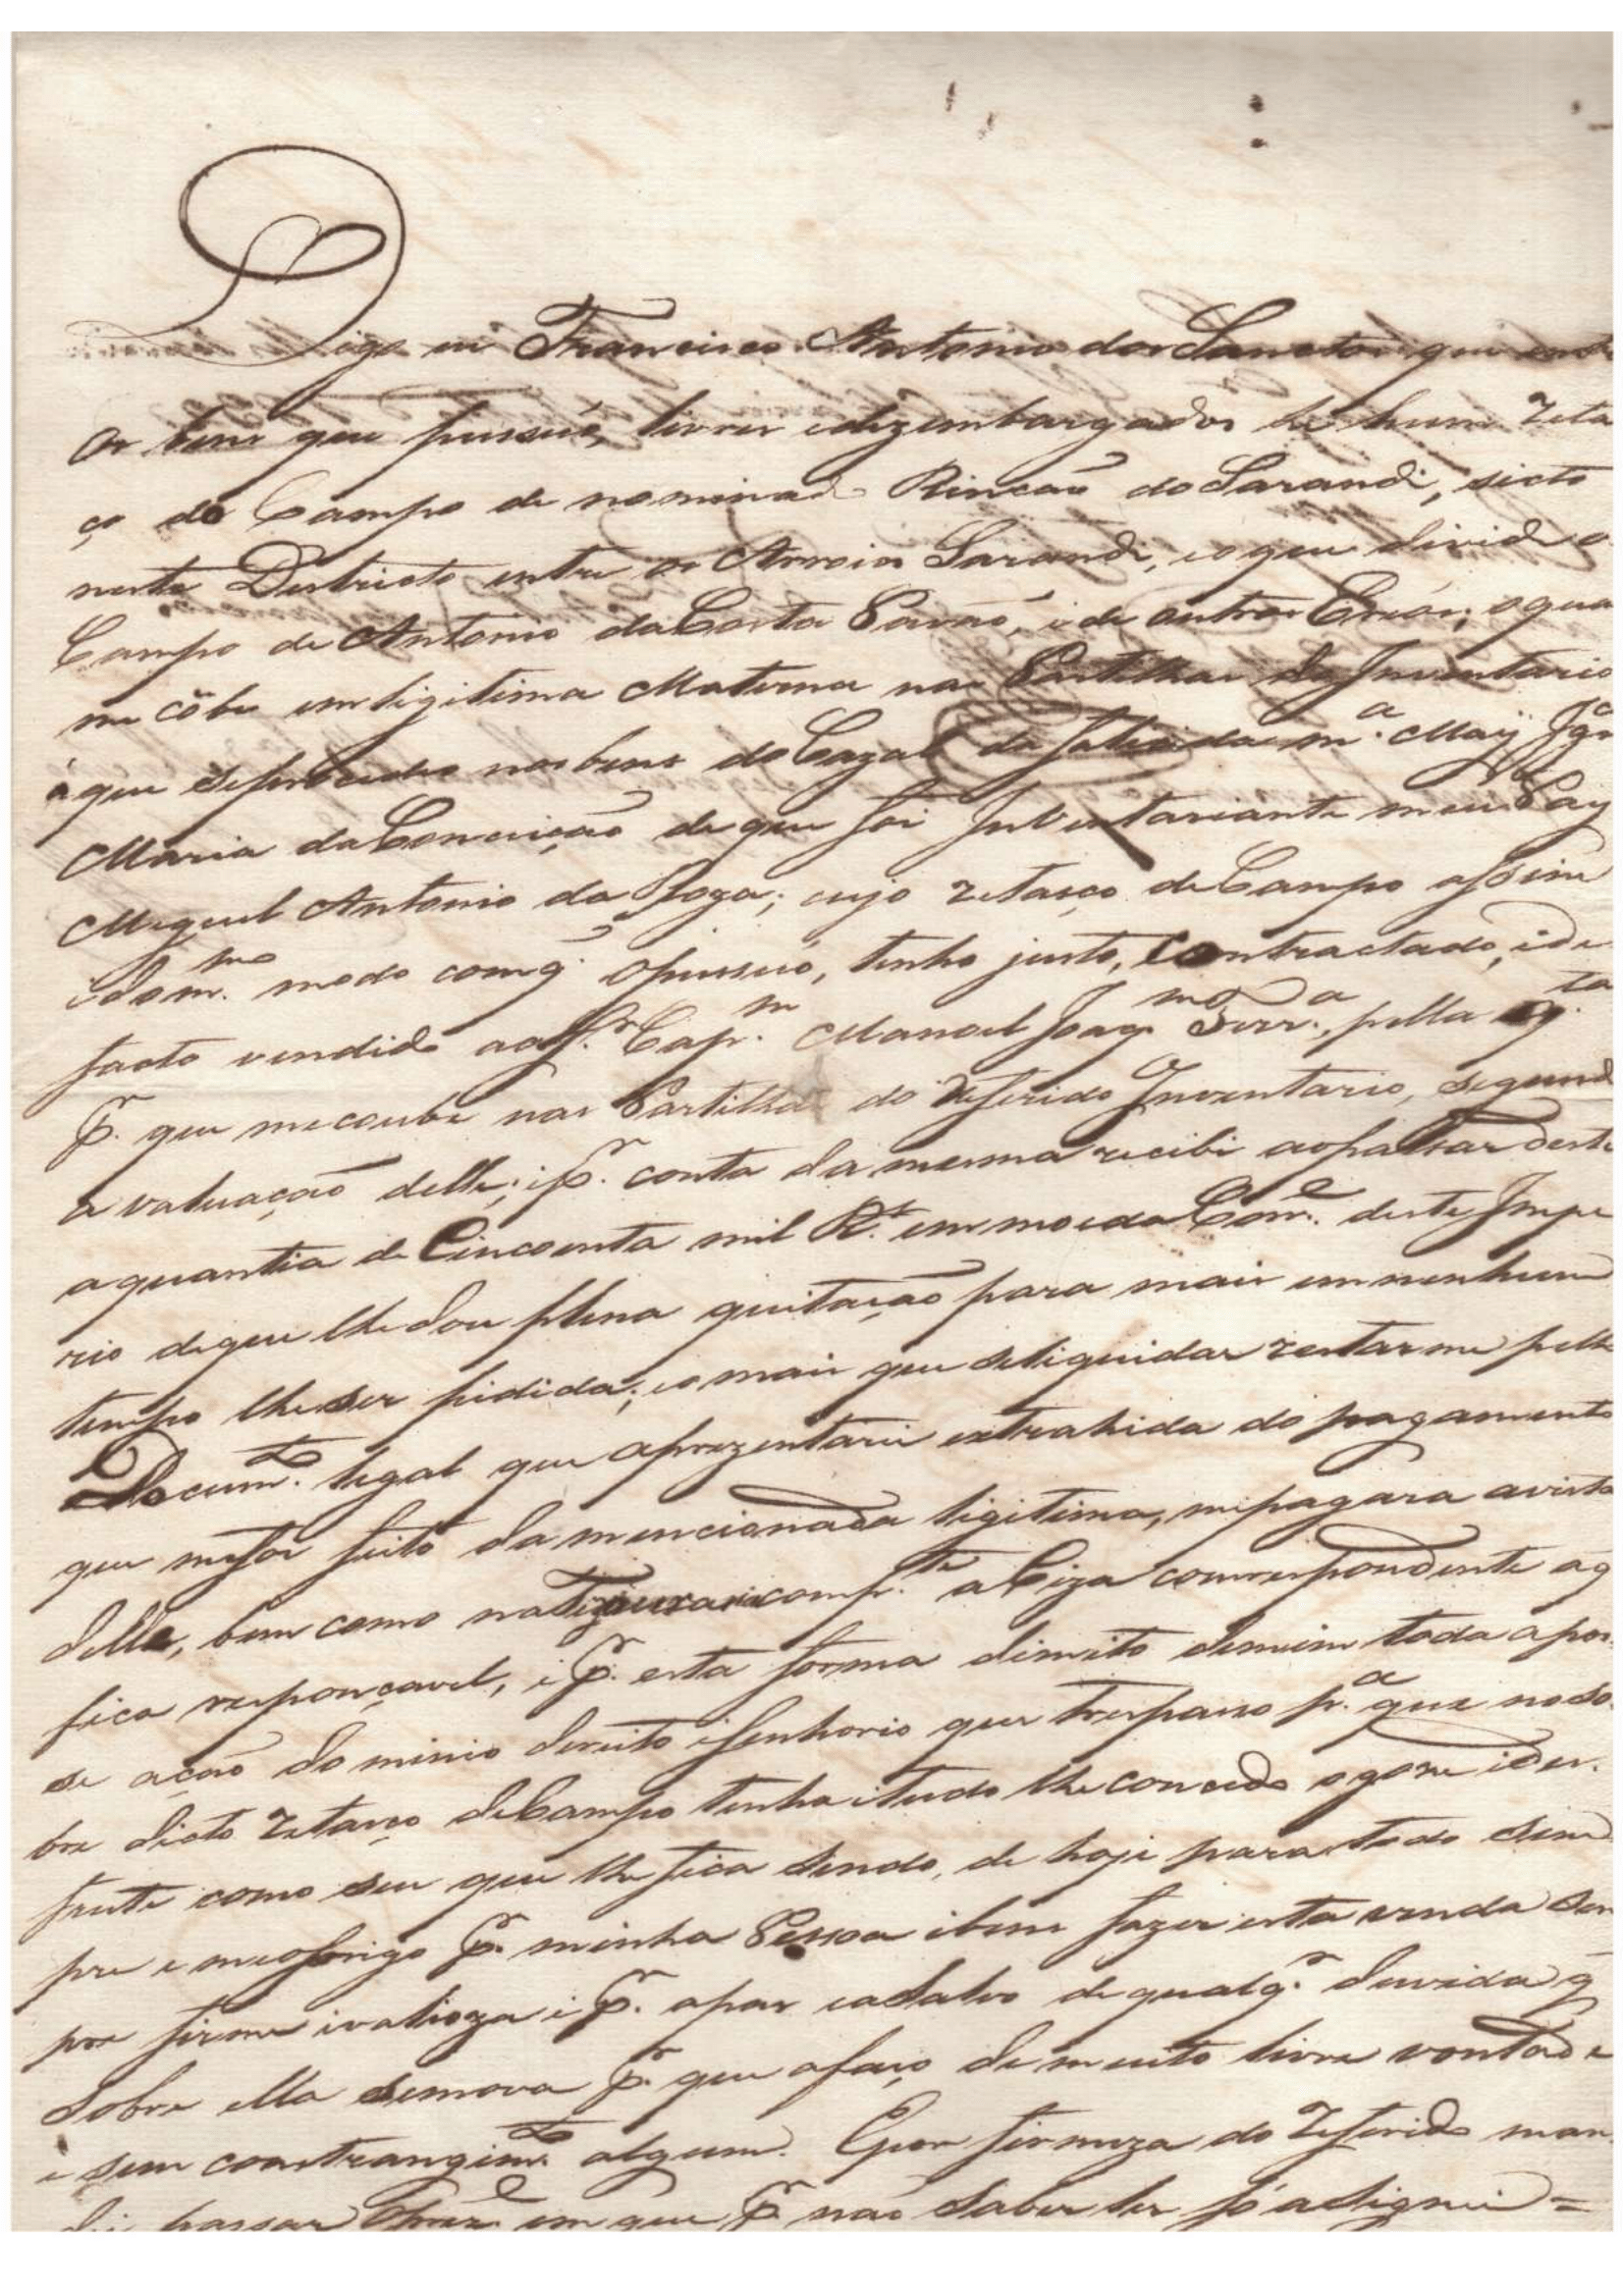 Digo eu Francisco Antonio dos Sanctos que entre
os bens que pussuó, livres e dezembargados he hum reta
ço de Campo denominado Rincaõ do Sarandi, sicto
neste Destricto entre os Arroios Sarandi, e o que divide o
Campo de Antonio da Costa Pavaõ, e de outros Eréos; o qual
me cõbe em ligitima Materna nas Partilhas do Inventario
á que se procedeo nos bens do Cazal da falecida m.ª May Ig.ª
Maria da Conceição de que foi Inventariante meu Pay
Miguel Antonio da Roza; cujo retaço de Campo assim
e do m.mo modo com q̃ o pussuó, tenho justo, contractado, e de
facto vendido ao Sr. Cap.m Manoel Joaq.m Ferr.a, pella q.ta
p.r que me coube nas Partilhas do referido Inventario, segundo
a valuação delle; e p.r conta da mesma recibi ao passar deste
a quantia de Cincoenta mil R.s em moeda Corr.e deste Impe
rio de que lhe dou plena quitação para mais em nenhum
tempo lhe ser pidida; e o mais que se liquidar restarme pello
Docum.to legal que aprezentarei extrahida do pagamento
que me foi feito da mencionada ligitima, me pagara avista
delle, bem como na comp.te a Ciza correspondente a q̃
fica responçavel, e p.r esta forma dimito demim toda a pos
se ação dominio dereito e senhorio que trespasso p.a que no so
bre dicto retaço de Campo tenha e tudo lhe concedo o goze e des
frute como seu que lhe fica sendo, de hoje para todo sem
pre e me obrigo p.r minha Pessoa e bens fazer esta venda sem
pre firme e valioza e p.r apas e a salvo de qualq.r duvida q̃
sobre ella se mova p.r que a faço de muito livre vontade
e sem constrangim.to algum. E por firmeza do referido man
dei passar o prez.e em que p.r não saber ler só asignei =